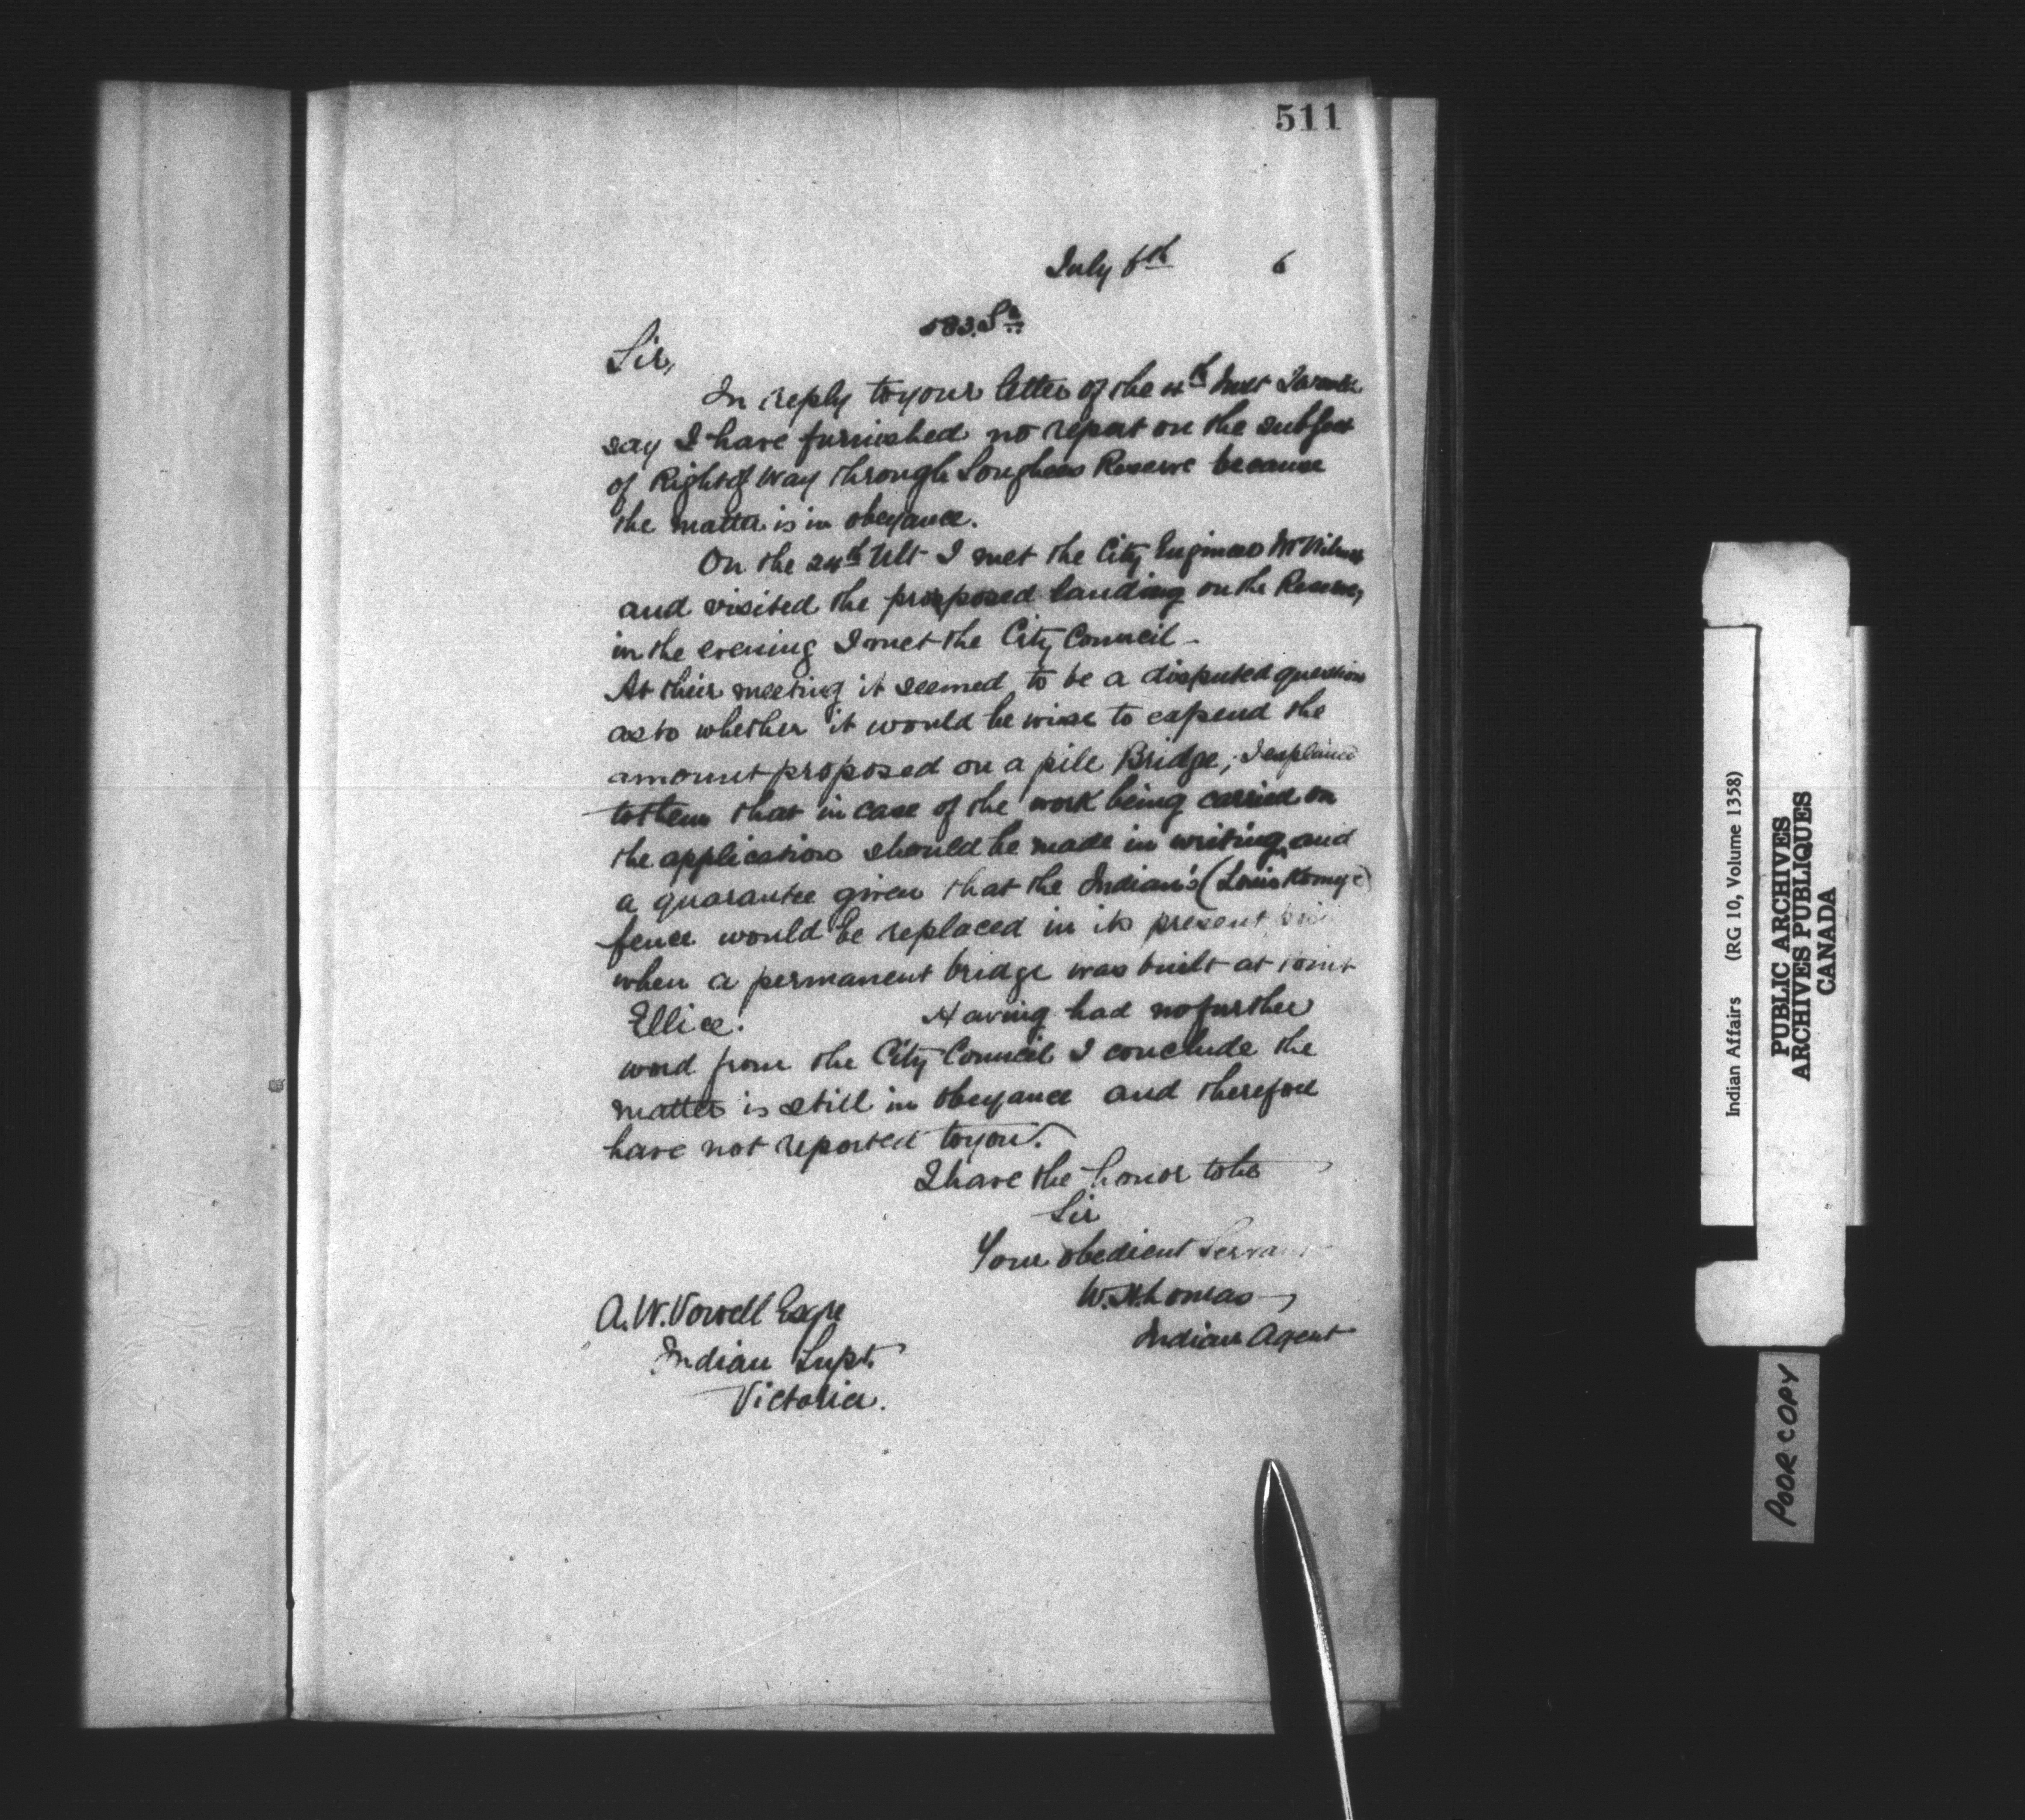 511
July 6th 6
583. Sh
Sir,
In reply to your letter of the 4th Inst I would
say I have furnished no report on the subject
of Right of Way through Songhees Reserve because
the matter is in obeyance.
On the 24th Ult I met the City Engineer Mr Wilmot
and visited the proposed landing on the Reserve,
in the evening I met the City Council -
At their meeting it seemed to be a disputed question
as to whether it would be wise to expend the
amount proposed on a pile Bridge; I explained
to them that in case of the work being carried on
the application should be made in writing and
a guarantee given that the Indian's (Louis
fence would be replaced in its present
when a permanent bridge was built at Point
Ellice.
Having had no further
word from the City Council I conclude the
matter is still in obeyance and therefore
have not reported to you.
I have the honor to be
Sir
Your obedient Servant
W.H. Lomas
Indian Agent
A. W. Vowell Esqre
Indian Supt.
Victoria.
Indian Affairs (RG 10, Volume 1358)
PUBLIC ARCHIVES
ARCHIVES PUBLIQUES
CANADA
POOR COPY